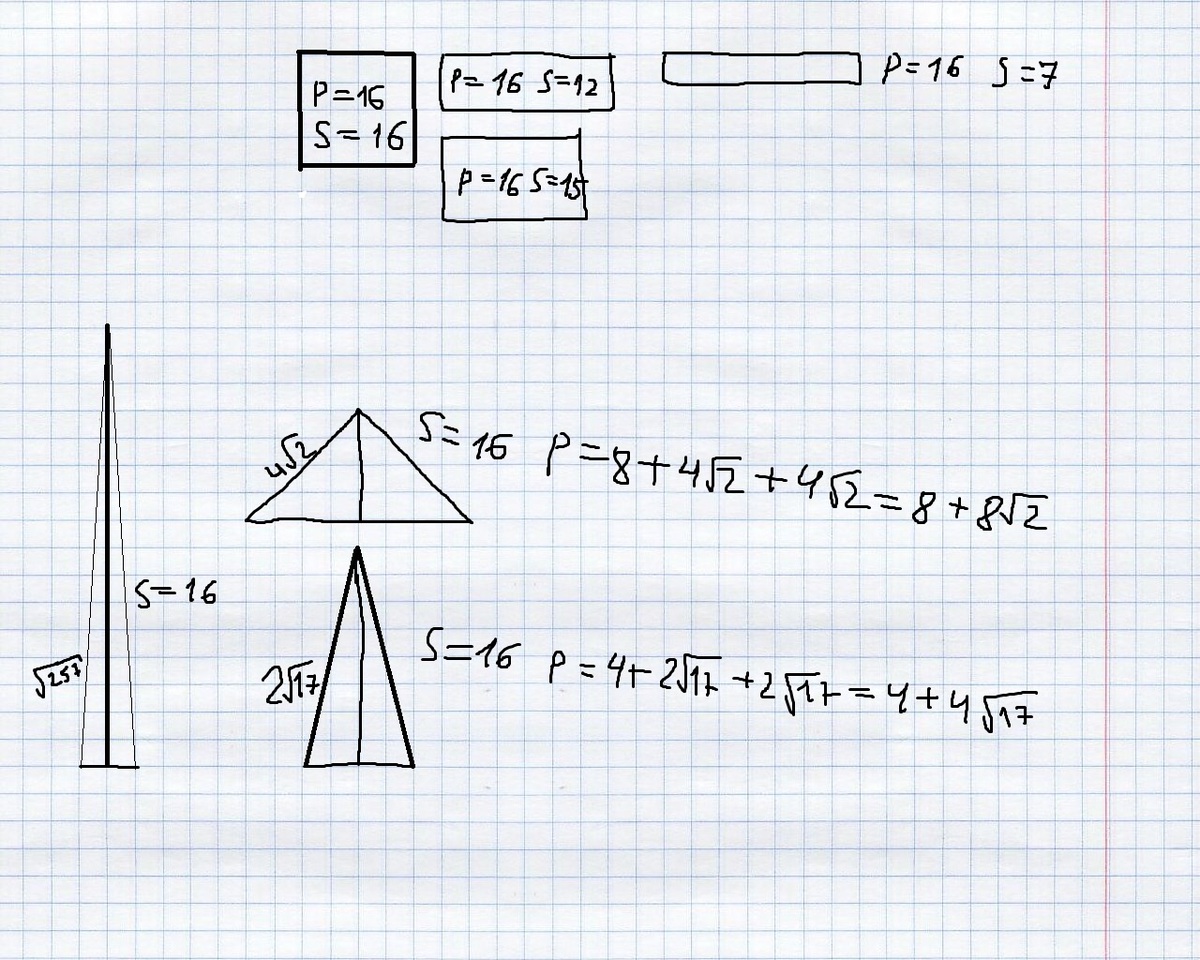 P=16
S=16
P=16 S=12
P=16 S=15
P=16 S=7
4√2
S=16
P=8+4√2+4√2=8+8√2
√257
S=16
2√17
S=16
P=4+2√17+2√17=4+4√17